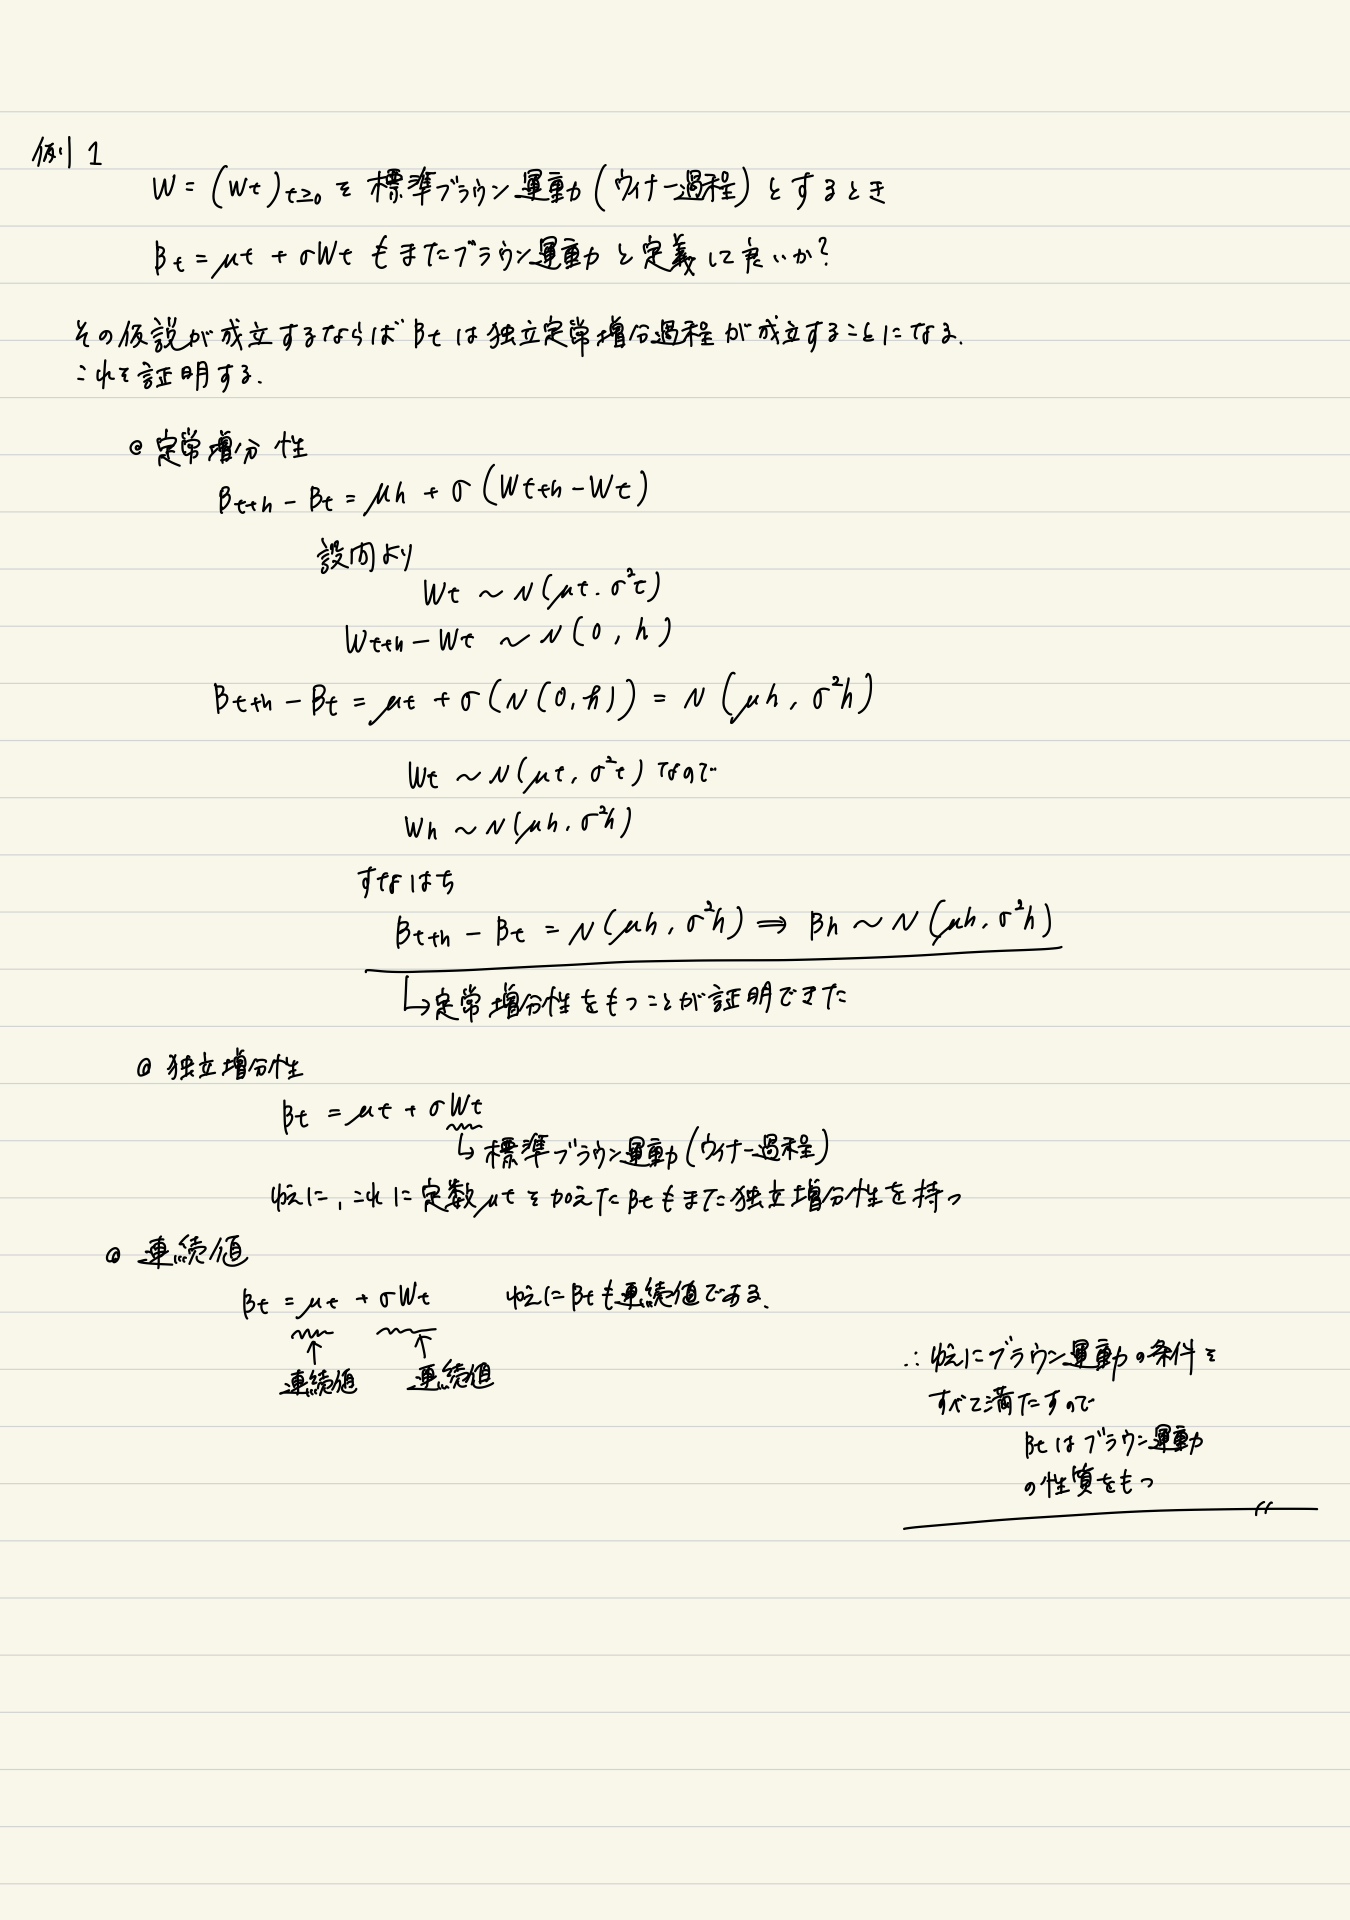 例1
W = (Wt)t≥0 を標準ブラウン運動(ウィナー過程)とするとき
Bt = μt + σWt もまたブラウン運動と定義して良いか?
その仮説が成立するならば Bt は独立定常増分過程が成立することになる.
これを証明する.
@ 定常増分性
Bt+h − Bt = μh + σ(Wt+h − Wt)
設問より
Wt ~ N(μt. σ²t)
Wt+h − Wt ~ N(0, h)
Bt+h − Bt = μt + σ(N(0, h)) = N(μh, σ²h)
Wt ~ N(μt, σ²t) なので
Wh ~ N(μh. σ²h)
すなはち
Bt+h − Bt = N(μh, σ²h) ⟹ Bh ~ N(μh. σ²h)
↳定常増分性をもつことが証明できた
@ 独立増分性
Bt = μt + σWt
↳ 標準ブラウン運動(ウィナー過程)
ゆえに, これに定数μtを加えたBtもまた独立増分性を持つ
@ 連続値
Bt = μt + σWt ゆえにBtも連続値である.
↑ ↑
連続値 連続値
∴ ゆえにブラウン運動の条件を
すべて満たすので
Btはブラウン運動
の性質をもつ